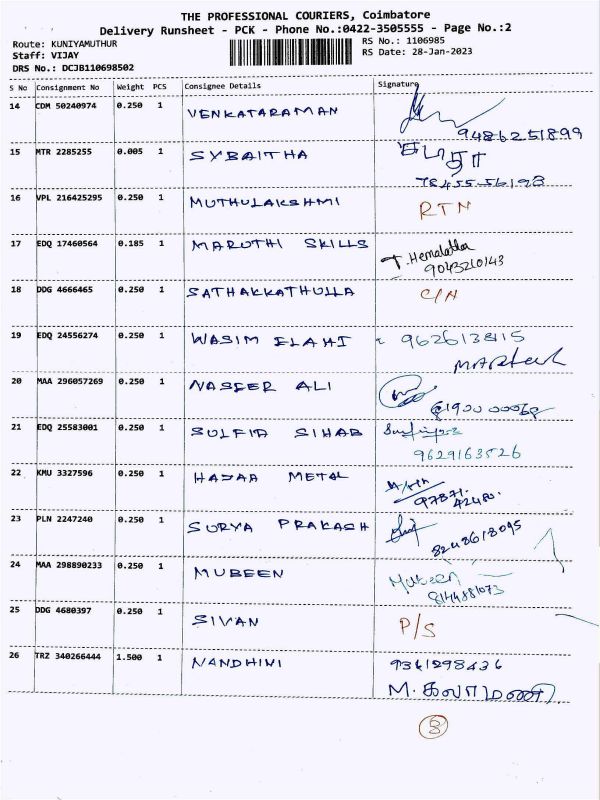 THE PROFESSIONAL COURIERS, Coimbatore
Delivery Runsheet - PCK - Phone No.:0422-3505555 - Page No.:2
Route: KUNIYAMUTHUR
RS No.: 1106985
Staff: VIJAY
RS Date: 28-Jan-2023
DRS No.: DCJB110698502
S No Consignment No Weight PCS Consignee Details Signature
14 CDM 50240974 0.250 1 VENKATARAMAN
9486251899
15 MTR 2285255 0.005 1 SYBAITHA
78455 56198
16 VPL 216425295 0.250 1 MUTHULAKSHMI RTN
17 EDQ 17460564 0.185 1 MARUTHI SKILLS T. Hemalatha
9043210143
18 DDG 4666465 0.250 1 SATHAKKATHULLA C/N
19 EDQ 24556274 0.250 1 WASIM ELAHI 9626138115
20 MAA 296057269 0.250 1 NASEER ALI
21 EDQ 25583001 0.250 1 SULFIA SIHAB
9629163526
22 KMU 3327596 0.250 1 HAJAA METAL
97871
42480.
23 PLN 2247240 0.250 1 SURYA PRAKASH
8248618095
24 MAA 298890233 0.250 1 MUBEEN Mubeen
8144881073
25 DDG 4680397 0.250 1 SIVAN P/S
26 TRZ 340266444 1.500 1 NANDHINI 9361298436
M. கலாமணி
8